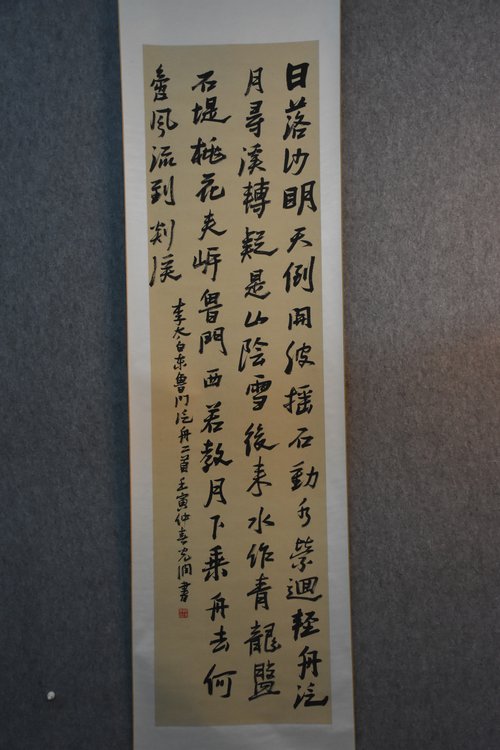 日落沙明天倒開波搖石動水縈迴輕舟泛
月尋溪轉疑是山陰雪後来水作青龍盤
石堤桃花夾岸魯門西若教月下乘舟去何
啻風流到剡溪
李太白東魯門泛舟二首壬寅仲春光润書